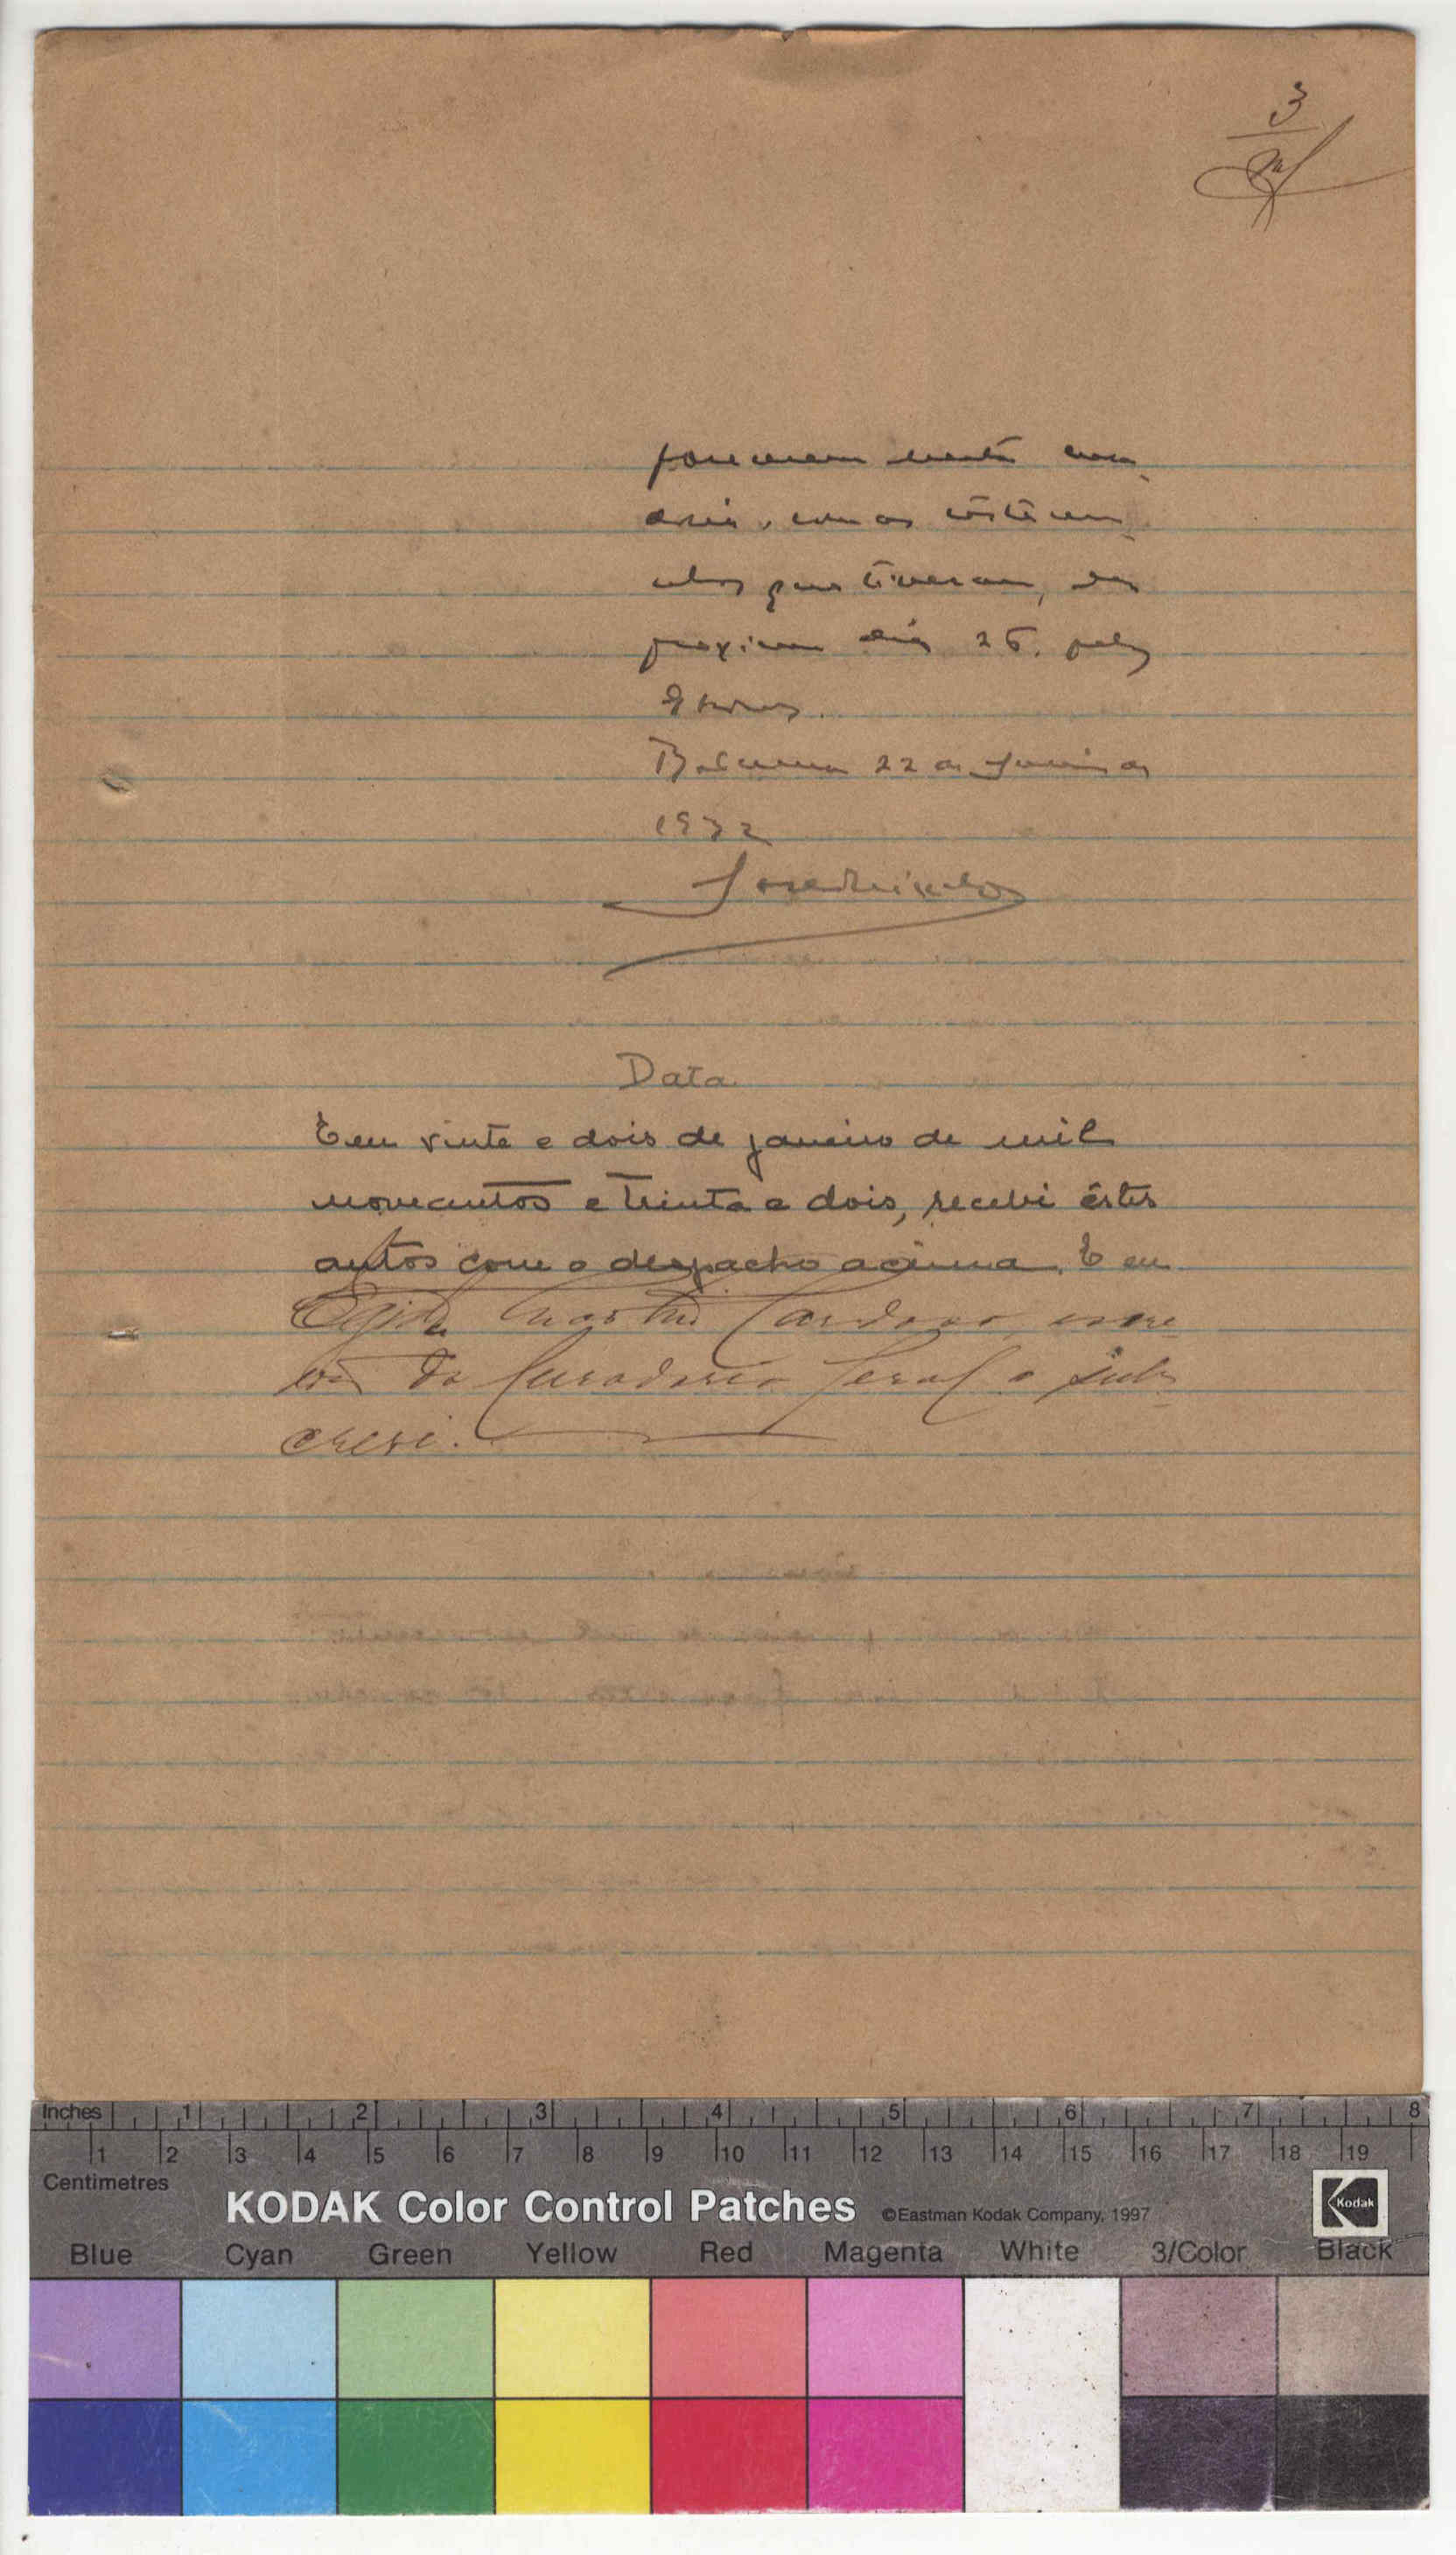 3
parecerem nesta cura-
doria, com as testemu-
nhas que tiverem, no
proximo dia 26, pelas
9 horas.
22 de Janeiro de
1932
Data
E em vinte e dois de janeiro de mil
novecentos e trinta e dois, recebi êstes
autos com o despacho acima. E eu
Cardoso, escri-
vão da Curadoria Geral o subs-
crevi.
Inches 1 2 3 4 5 6 7 8
1 2 3 4 5 6 7 8 9 10 11 12 13 14 15 16 17 18 19
Centimetres
KODAK Color Control Patches ©Eastman Kodak Company, 1997 Kodak
Blue Cyan Green Yellow Red Magenta White 3/Color Black